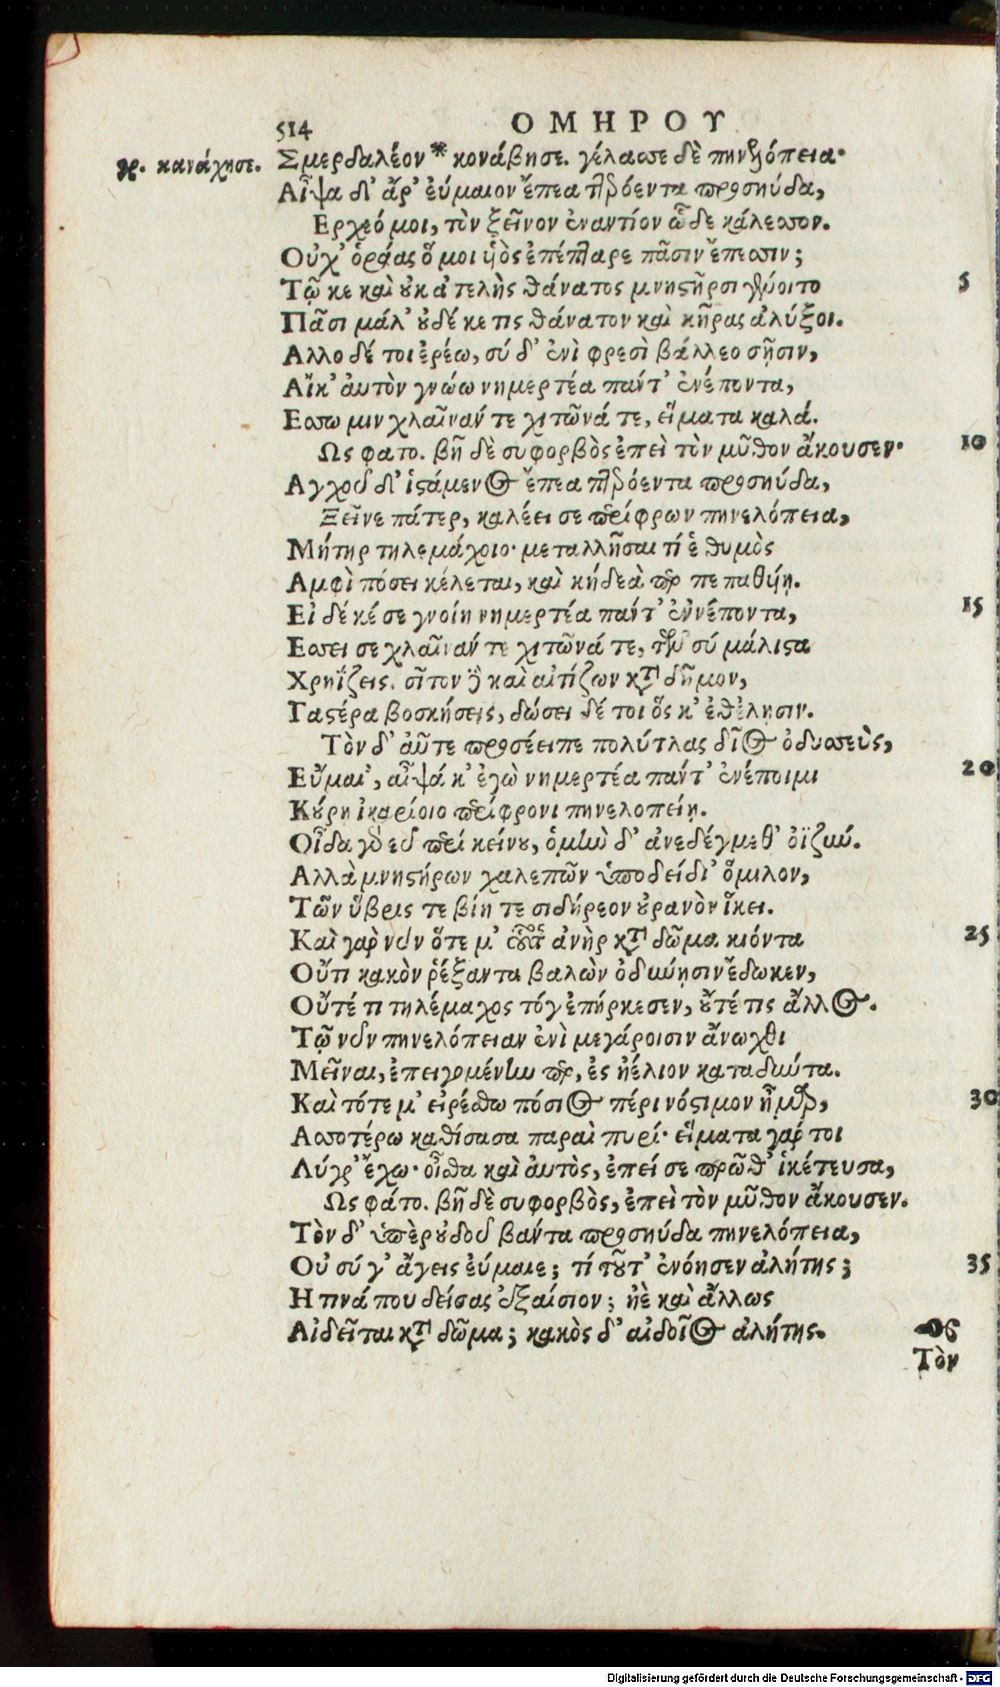 514 ΟΜΗΡΟΥ
γρ. κανάχησε. Σμερδαλέον * κονάβησε. γέλασσε δὲ πηνελόπεια·
Αἶψα δ' ἄρ' ἐύμαιον ἔπεα πτερόεντα προσηύδα,
Ερχεό μοι, τὸν ξεῖνον ἐναντίον ὧδε κάλεσσον.
Οὐχ' ὁράας ὅ μοι ὑὸς ἐπέπταρε πᾶσιν ἔπεσσιν;
Τῷ κε καὶ οὐκ ἀτελὴς θάνατος μνηστῆρσι γένοιτο 5
Πᾶσι μάλ' οὐδέ κε τις θάνατον καὶ κῆρας ἀλύξοι.
Αλλο δέ τοι ἐρέω, σύ δ' ἐνὶ φρεσὶ βάλλεο σῇσιν,
Αἴκ' ἀυτὸν γνώω νημερτέα παντ' ἐνέποντα,
Εσσω μιν χλαῖναν τε χιτῶνά τε, εἵματα καλά.
Ως φατο. βῆ δὲ συφορβὸς ἐπεὶ τὸν μῦθον ἄκουσεν· 10
Αγχοῦ δ' ἱστάμενος ἔπεα πτερόεντα προσηύδα,
Ξεῖνε πάτερ, καλέει σε περίφρων πηνελόπεια,
Μήτηρ τηλεμάχοιο· μεταλλῆσαι τί ἑ θυμὸς
Αμφὶ πόσει κέλεται, καὶ κήδεά περ πεπαθυίῃ.
Εἰ δέ κέ σε γνοίη νημερτέα παντ' ἐννέποντα, 15
Εσσει σε χλαῖναν τε χιτῶνά τε, τῶν σύ μάλιστα
Χρηΐζεις. σῖτον δὲ καὶ αἰτίζων κατὰ δῆμον,
Γαστέρα βοσκήσεις, δώσει δέ τοι ὅς κ' ἐθέλησιν.
Τὸν δ' ἀῦτε προσέειπε πολύτλας δῖος ὀδυσσεὺς,
Εὔμαι', αἶψά κ' ἐγὼ νημερτέα παντ' ἐνέποιμι 20
Κούρη ἰκαρίοιο περίφρονι πηνελοπείῃ.
Οἶδα γὰρ εὖ περὶ κείνου, ὁμὴν δ' ἀνεδέγμεθ' ὀϊζύν.
Αλλὰ μνηστήρων χαλεπῶν ὑποδείδι' ὅμιλον,
Τῶν ὕβρις τε βίη τε σιδήρεον οὐρανὸν ἵκει.
Καὶ γαρ νῦν ὅτε μ' οὗτος ἀνὴρ κατὰ δῶμα κιόντα 25
Οὔτι κακὸν ῥέξαντα βαλὼν ὀδύνησιν ἔδωκεν,
Οὔτέ τι τηλέμαχος τόγ ἐπήρκεσεν, οὔτέ τις ἄλλος.
Τῷ νῦν πηνελόπειαν ἐνὶ μεγάροισιν ἄνωχθι
Μεῖναι, ἐπειγομένην περ, ἐς ἠέλιον καταδύντα.
Καὶ τότε μ' εἰρέσθω πόσιος πέρι νόστιμον ἦμαρ, 30
Ασσοτέρω καθίσασα παραὶ πυρί· εἵματα γαρ τοι
Λύγρ' ἔχω· οἶσθα καὶ ἀυτὸς, ἐπεί σε πρῶθ' ἱκέτευσα,
Ως φάτο. βῆ δὲ συφορβὸς, ἐπεὶ τὸν μῦθον ἄκουσεν.
Τὸν δ' ὑπὲρ οὐδοῦ βαντα προσηύδα πηνελόπεια,
Οὐ σύ γ' ἄγεις ἐύμαιε; τί τοῦτ' ἐνόησεν ἀλήτης; 35
Η τινά που δείσας ἐξαίσιον; ἠὲ καὶ ἄλλως
Αἰδεῖται κατὰ δῶμα; κακὸς δ' αἰδοῖος ἀλήτης.
Τὸν
Digitalisierung gefördert durch die Deutsche Forschungsgemeinschaft - DFG